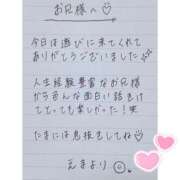 お兄様へ♡
今日は遊びに来てくれて
ありがとうございました
人生経験豊富なお兄様
から色んな面白い話きけ
てとっても楽しかった！笑
たまには息抜きしてね♡
えまより